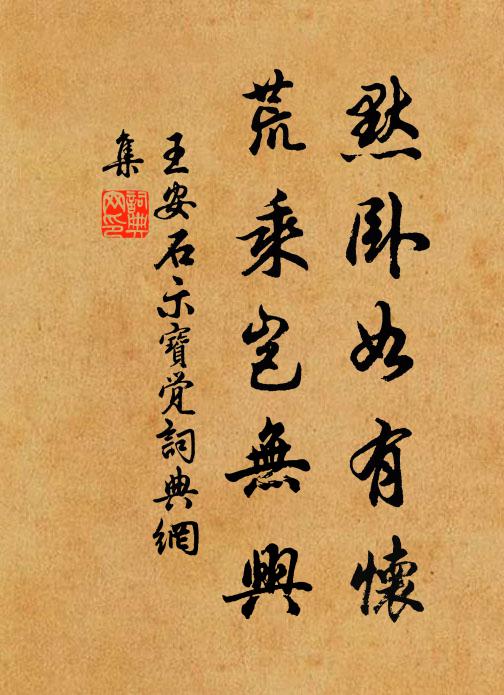 默卧如有懷
荒乘豈無興
王安石示寶覺詞典網
集
詞典网印